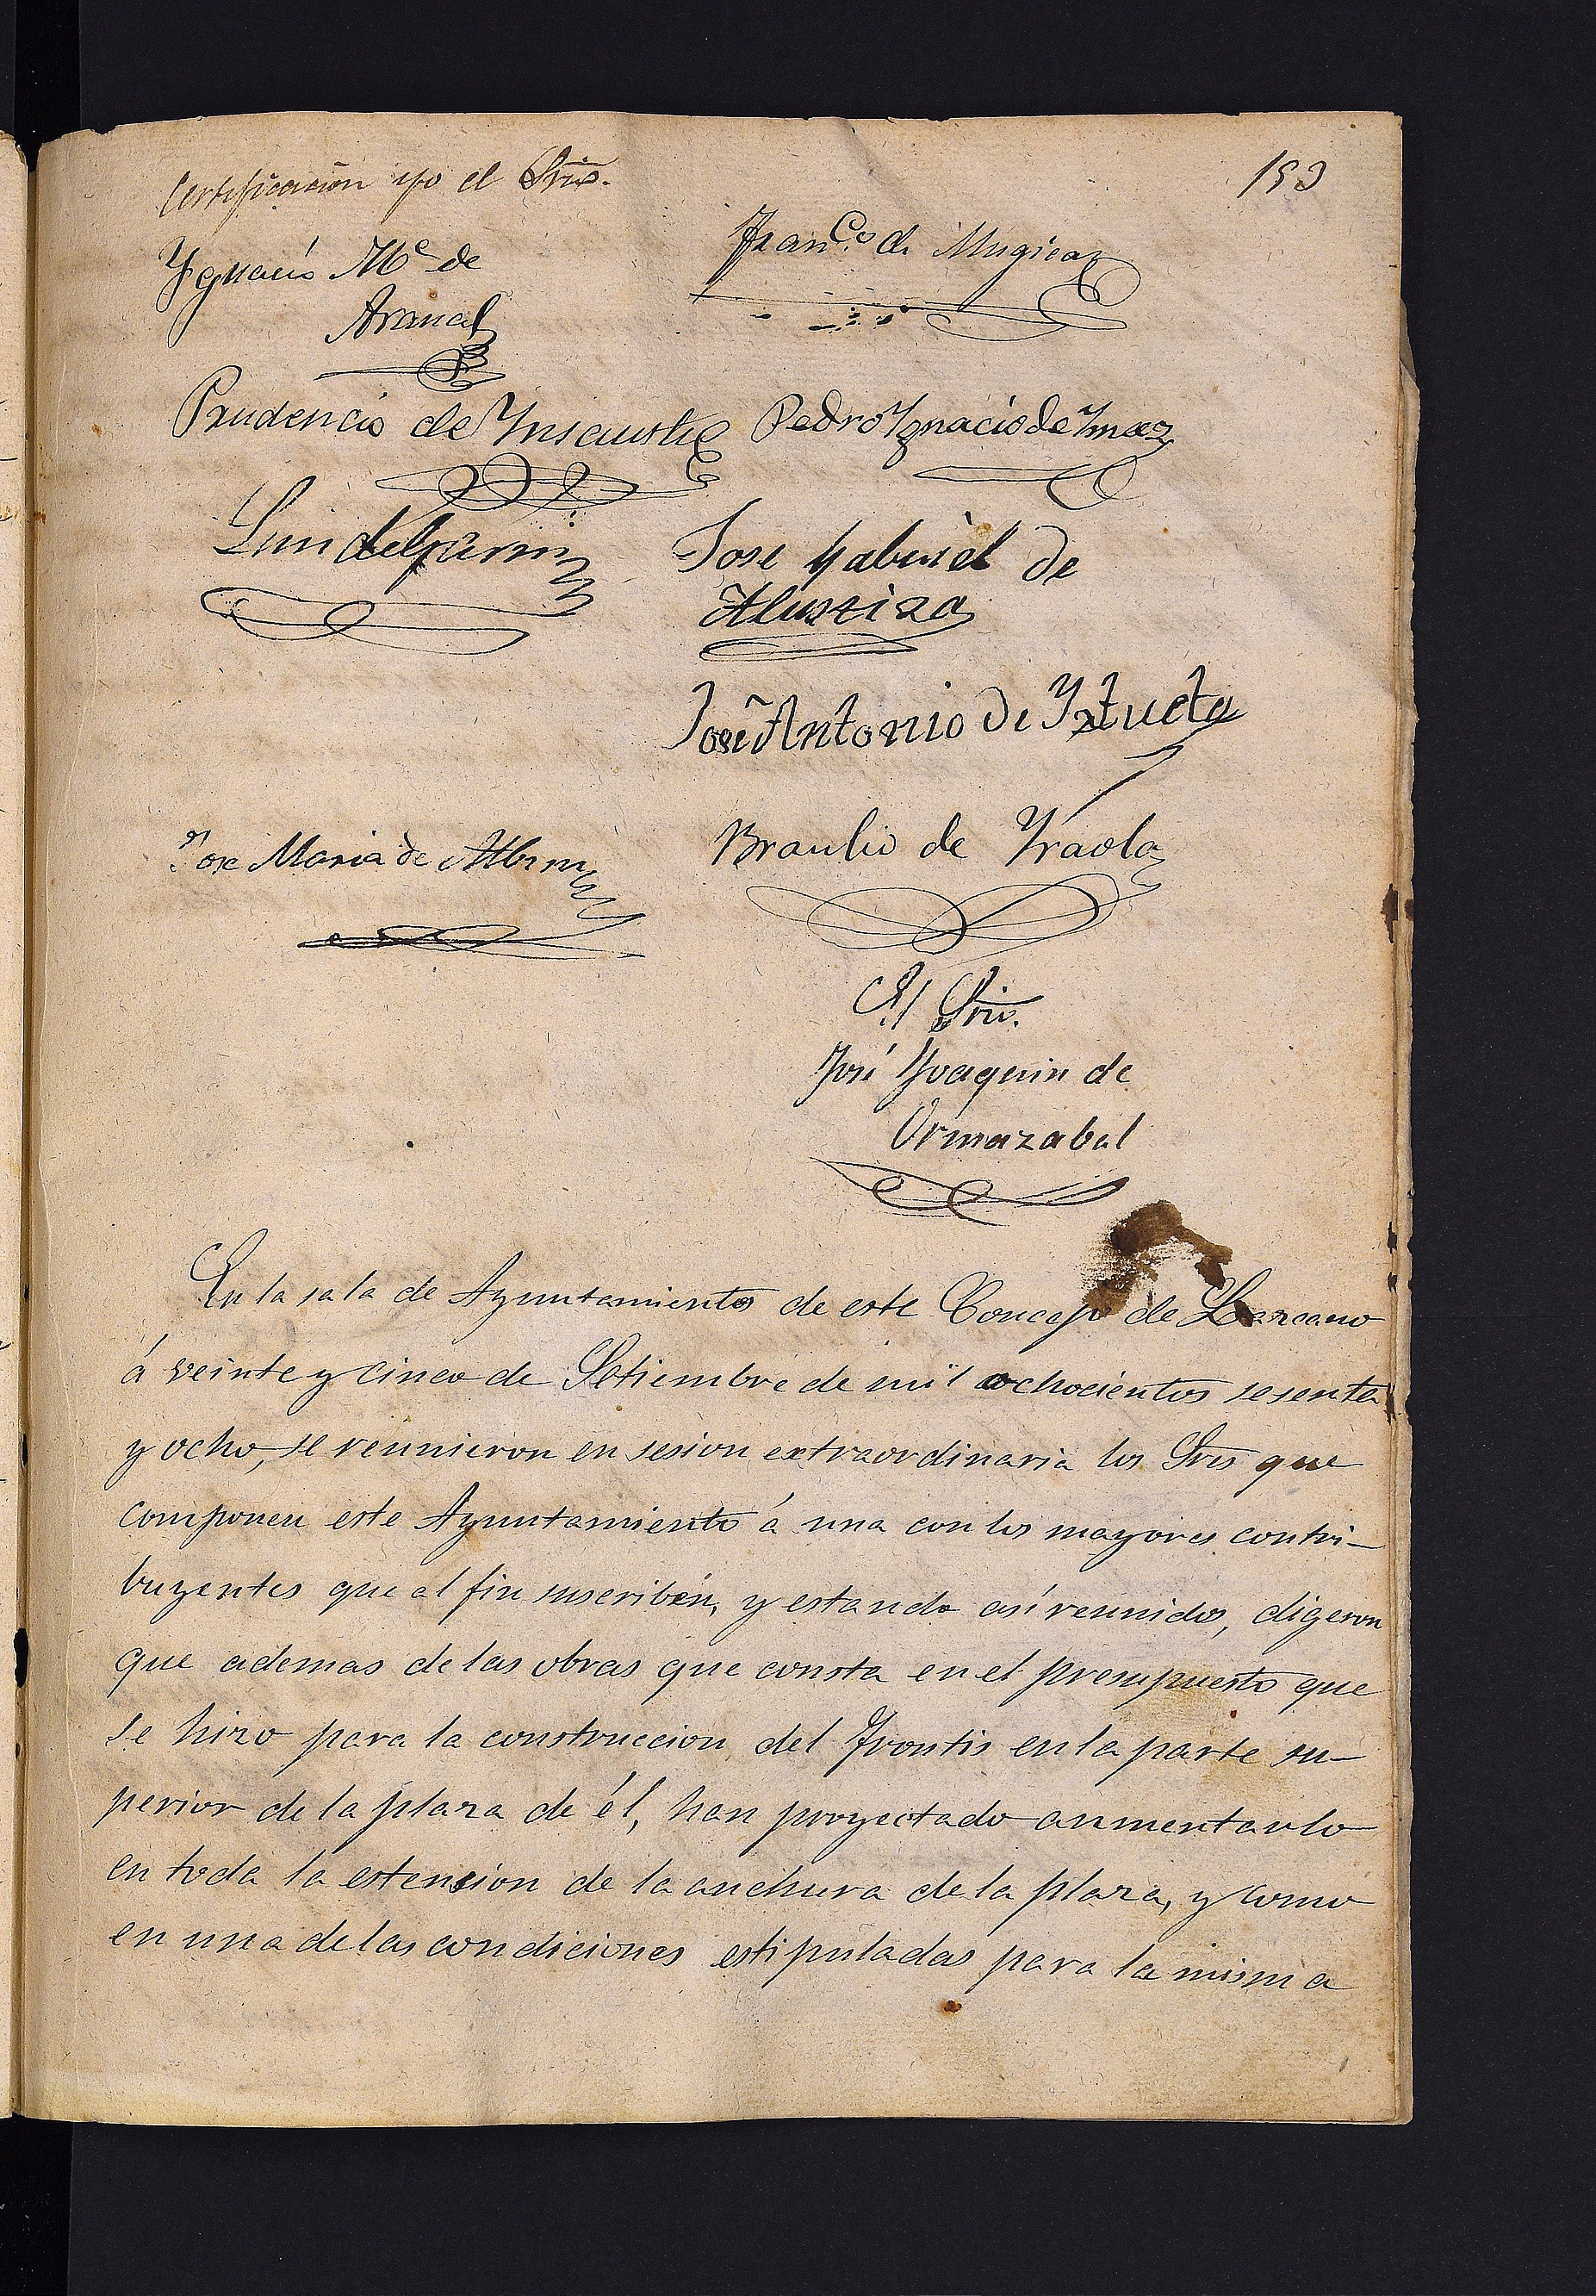 153
Certificacion yo el Srio.
Ygnacio Mª de
Franco. de Mugica
Prudencio de Ynsausti
Pedro Ygnacio de Ymaz
Luis de Garin
Jose Gabriel de
Alustiza
José Antonio de Yztueta
Jose Maria de Alberro
Braulio de Yraola
El Srio.
José Joaquin de
Ormazabal
En la sala de Ayuntamiento de este Concejo de Lazcano
á veinte y cinco de Setiembre de mil ochocientos sesenta
y ocho, se reunieron en sesion extraordinaria los Sres que
componen este Ayuntamiento á una con los mayores contri-
buyentes que al fin suscriben, y estando así reunidos, digeron
que ademas de las obras que consta en el presupuesto que
se hizo para la construccion del Frontis en la parte su-
perior de la plaza de él, han proyectado aumentarlo
en toda la estension de la anchura de la plaza, y como
en una de las condiciones estipuladas para la misma